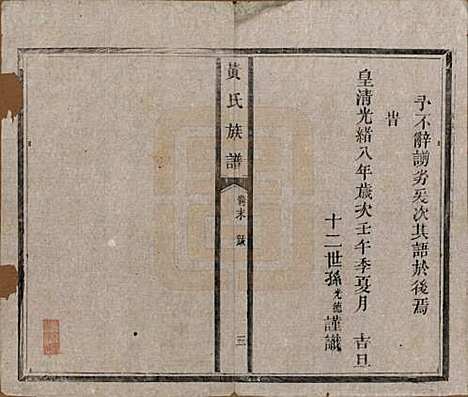 予不辭謭劣爰次其語於後焉
旹
皇清光緒八年歲次壬午季夏月 吉旦
十二世孫光德謹識
黃氏族譜
三